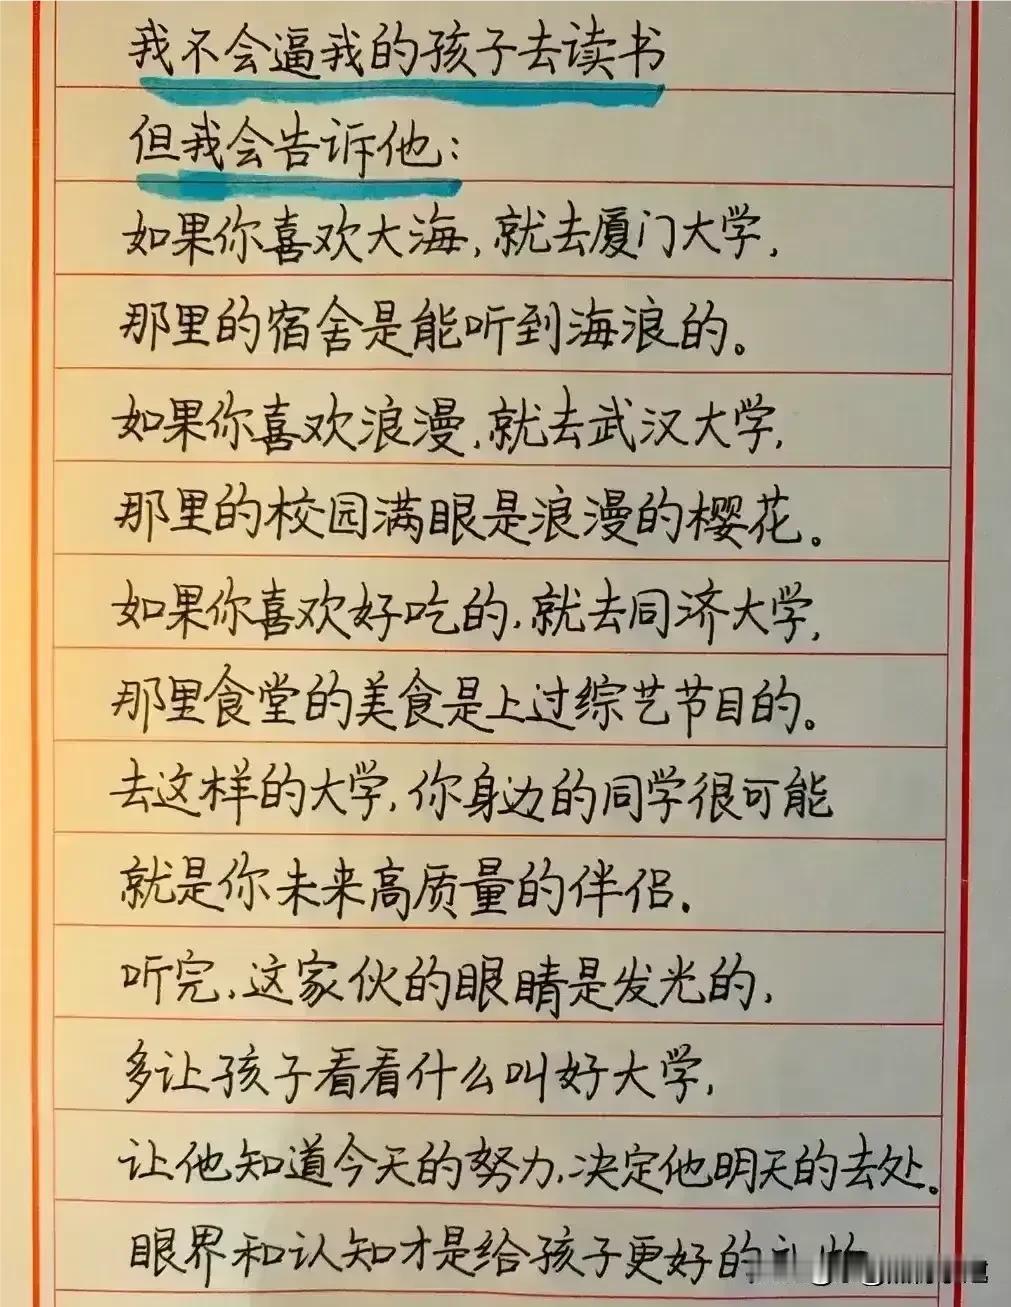 我不会逼我的孩子去读书
但我会告诉他：
如果你喜欢大海，就去厦门大学，
那里的宿舍是能听到海浪的。
如果你喜欢浪漫，就去武汉大学，
那里的校园满眼是浪漫的樱花。
如果你喜欢好吃的，就去同济大学，
那里食堂的美食是上过综艺节目的。
去这样的大学，你身边的同学很可能
就是你未来高质量的伴侣．
听完，这家伙的眼睛是发光的，
多让孩子看看什么叫好大学，
让他知道今天的努力，决定他明天的去处。
眼界和认知才是给孩子更好的